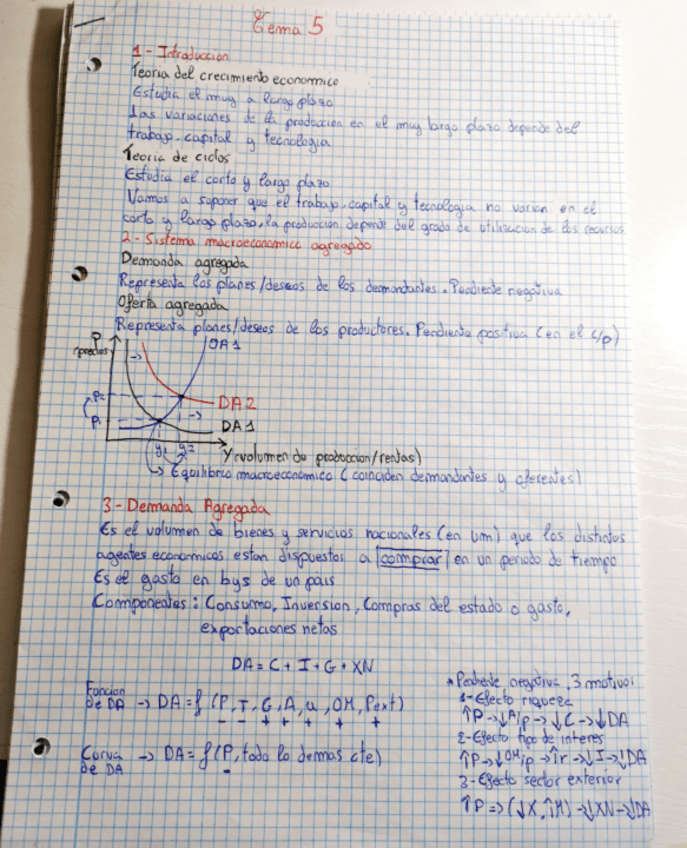 Tema 5
1- Introduccion
Teoria del crecimiento economico
Estudia el muy a largo plazo
Las variaciones de la produccion en el muy largo plazo depende del
trabajo, capital y tecnologia
Teoria de ciclos
Estudia el corto y largo plazo
Vamos a suponer que el trabajo, capital y tecnologia no varian en el
corto y largo plazo, la produccion depende del grado de utilizacion de los recursos
2- Sistema macroeconomico agregado
Demanda agregada
Representa los planes/deseos de los demandantes. Pendiente negativa
Oferta agregada
Representa planes/deseos de los productores. Pendiente positiva (en el c/p)
P
(precios)
OA1
P2
P1
DA2
DA1
y1 y2
Y(volumen de produccion/rentas)
↳ Equilibrio macroeconomico (coinciden demandantes y oferentes)
3- Demanda Agregada
Es el volumen de bienes y servicios nacionales (en um) que los distintos
agentes economicos estan dispuestos a comprar en un periodo de tiempo
Es el gasto en bys de un pais
Componentes: Consumo, Inversion, Compras del estado o gasto,
exportaciones netas
DA = C + I + G + XN
Funcion
de DA → DA = f (P, T, G, A, u, OM, Pext)
- - + + + + +
Curva
de DA → DA = f (P, todo lo demas cte)
-
* Pendiente negativa, 3 motivos
1- Efecto riqueza
↑P → ↓A/p → ↓C → ↓DA
2- Efecto tipo de interes
↑P → ↓OM/p → ↑r → ↓I → ↓DA
3- Efecto sector exterior
↑P => (↓X, ↑M) → ↓XN → ↓DA